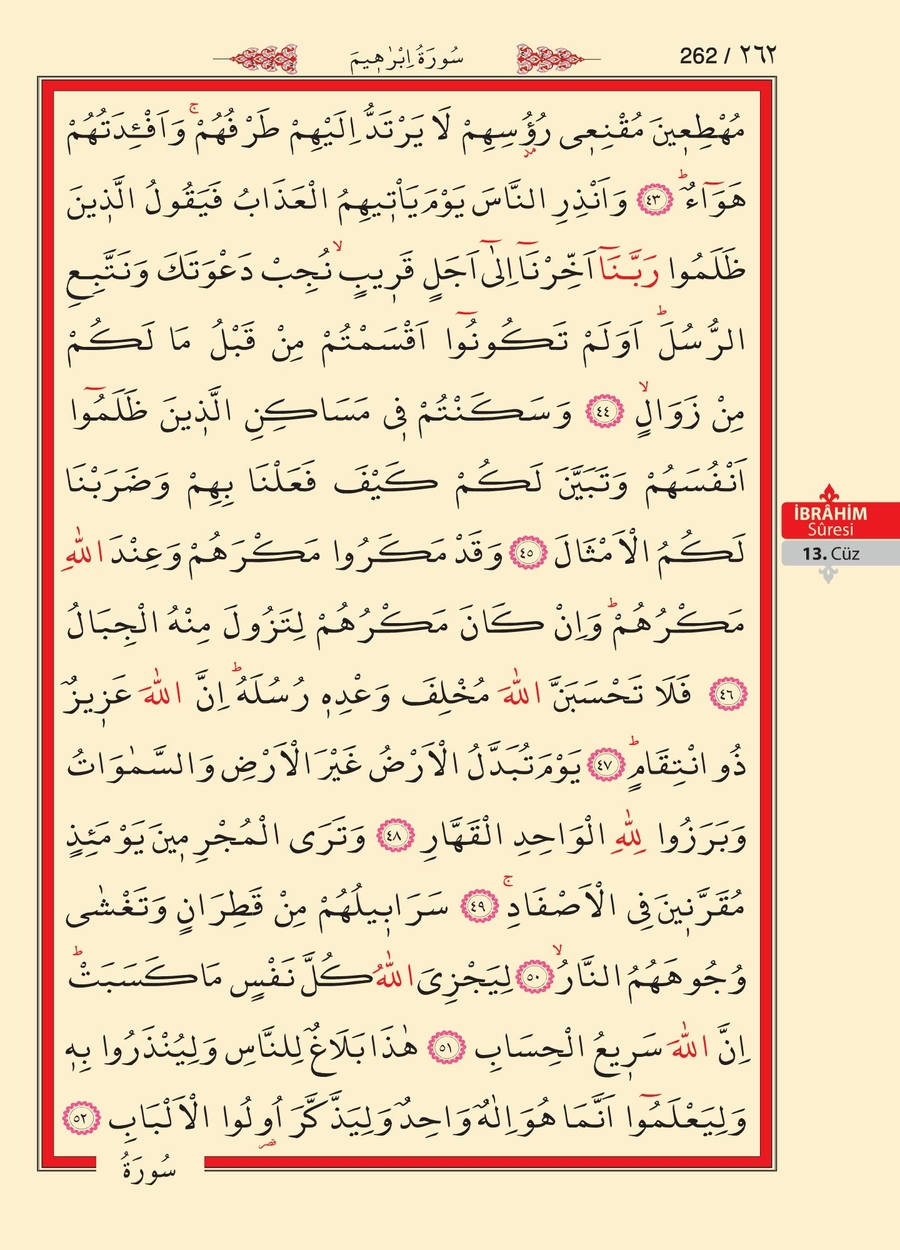 262 / ٢٦٢
سُورَةُ اِبْرٰه۪يمَ
مُهْطِع۪ينَ مُقْنِع۪ى رُؤُ۫سِهِمْ لَا يَرْتَدُّ اِلَيْهِمْ طَرْفُهُمْۚ وَاَفْـِٔدَتُهُمْ
هَوَٓاءٌۜ ﴿٤٣﴾ وَاَنْذِرِ النَّاسَ يَوْمَ يَأْت۪يهِمُ الْعَذَابُ فَيَقُولُ الَّذ۪ينَ
ظَلَمُوا رَبَّنَٓا اَخِّرْنَٓا اِلٰٓى اَجَلٍ قَر۪يبٍۙ نُجِبْ دَعْوَتَكَ وَنَتَّبِعِ
الرُّسُلَۜ اَوَلَمْ تَكُونُٓوا اَقْسَمْتُمْ مِنْ قَبْلُ مَا لَكُمْ
مِنْ زَوَالٍۙ ﴿٤٤﴾ وَسَكَنْتُمْ ف۪ى مَسَاكِنِ الَّذ۪ينَ ظَلَمُٓوا
اَنْفُسَهُمْ وَتَبَيَّنَ لَكُمْ كَيْفَ فَعَلْنَا بِهِمْ وَضَرَبْنَا
لَكُمُ الْاَمْثَالَ ﴿٤٥﴾ وَقَدْ مَكَرُوا مَكْرَهُمْ وَعِنْدَ اللّٰهِ
مَكْرُهُمْۜ وَاِنْ كَانَ مَكْرُهُمْ لِتَزُولَ مِنْهُ الْجِبَالُ
﴿٤٦﴾ فَلَا تَحْسَبَنَّ اللّٰهَ مُخْلِفَ وَعْدِه۪ رُسُلَهُۜ اِنَّ اللّٰهَ عَز۪يزٌ
ذُو انْتِقَامٍۜ ﴿٤٧﴾ يَوْمَ تُبَدَّلُ الْاَرْضُ غَيْرَ الْاَرْضِ وَالسَّمٰوَاتُ
وَبَرَزُوا لِلّٰهِ الْوَاحِدِ الْقَهَّارِ ﴿٤٨﴾ وَتَرَى الْمُجْرِم۪ينَ يَوْمَئِذٍ
مُقَرَّن۪ينَ فِى الْاَصْفَادِۚ ﴿٤٩﴾ سَرَاب۪يلُهُمْ مِنْ قَطِرَانٍ وَتَغْشٰى
وُجُوهَهُمُ النَّارُۙ ﴿٥٠﴾ لِيَجْزِىَ اللّٰهُ كُلَّ نَفْسٍ مَا كَسَبَتْۜ
اِنَّ اللّٰهَ سَر۪يعُ الْحِسَابِ ﴿٥١﴾ هٰذَا بَلَاغٌ لِلنَّاسِ وَلِيُنْذَرُوا بِه۪
وَلِيَعْلَمُٓوا اَنَّمَا هُوَ اِلٰهٌ وَاحِدٌ وَلِيَذَّكَّرَ اُو۬لُوا الْاَلْبَابِ ﴿٥٢﴾
سُورَةُ
İBRÂHİM
Sûresi
13. Cüz